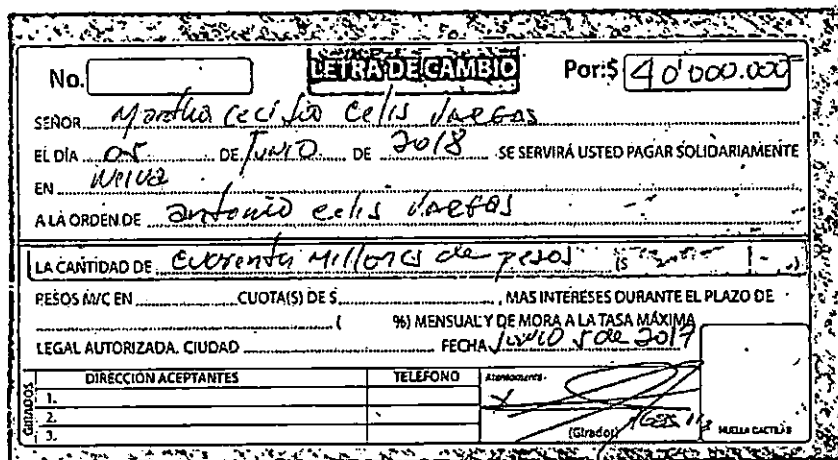 No. LETRA DE CAMBIO Por:$ 40'000.000=
SEÑOR Martha Cecilia Celis Vargas
EL DÍA 05 DE Junio DE 2018 SE SERVIRÁ USTED PAGAR SOLIDARIAMENTE
EN Neiva
A LA ORDEN DE antonio celis Vargas
LA CANTIDAD DE Cuarenta Millones de pesos ($
PESOS M/C EN CUOTA(S) DE $ , MAS INTERESES DURANTE EL PLAZO DE
( %) MENSUAL Y DE MORA A LA TASA MÁXIMA
LEGAL AUTORIZADA. CIUDAD FECHA Junio 5 de 2017
GIRADOS DIRECCIÓN ACEPTANTES TELEFONO Atentamente
1.
2.
3.
(Girador) HUELLA DACTILAR